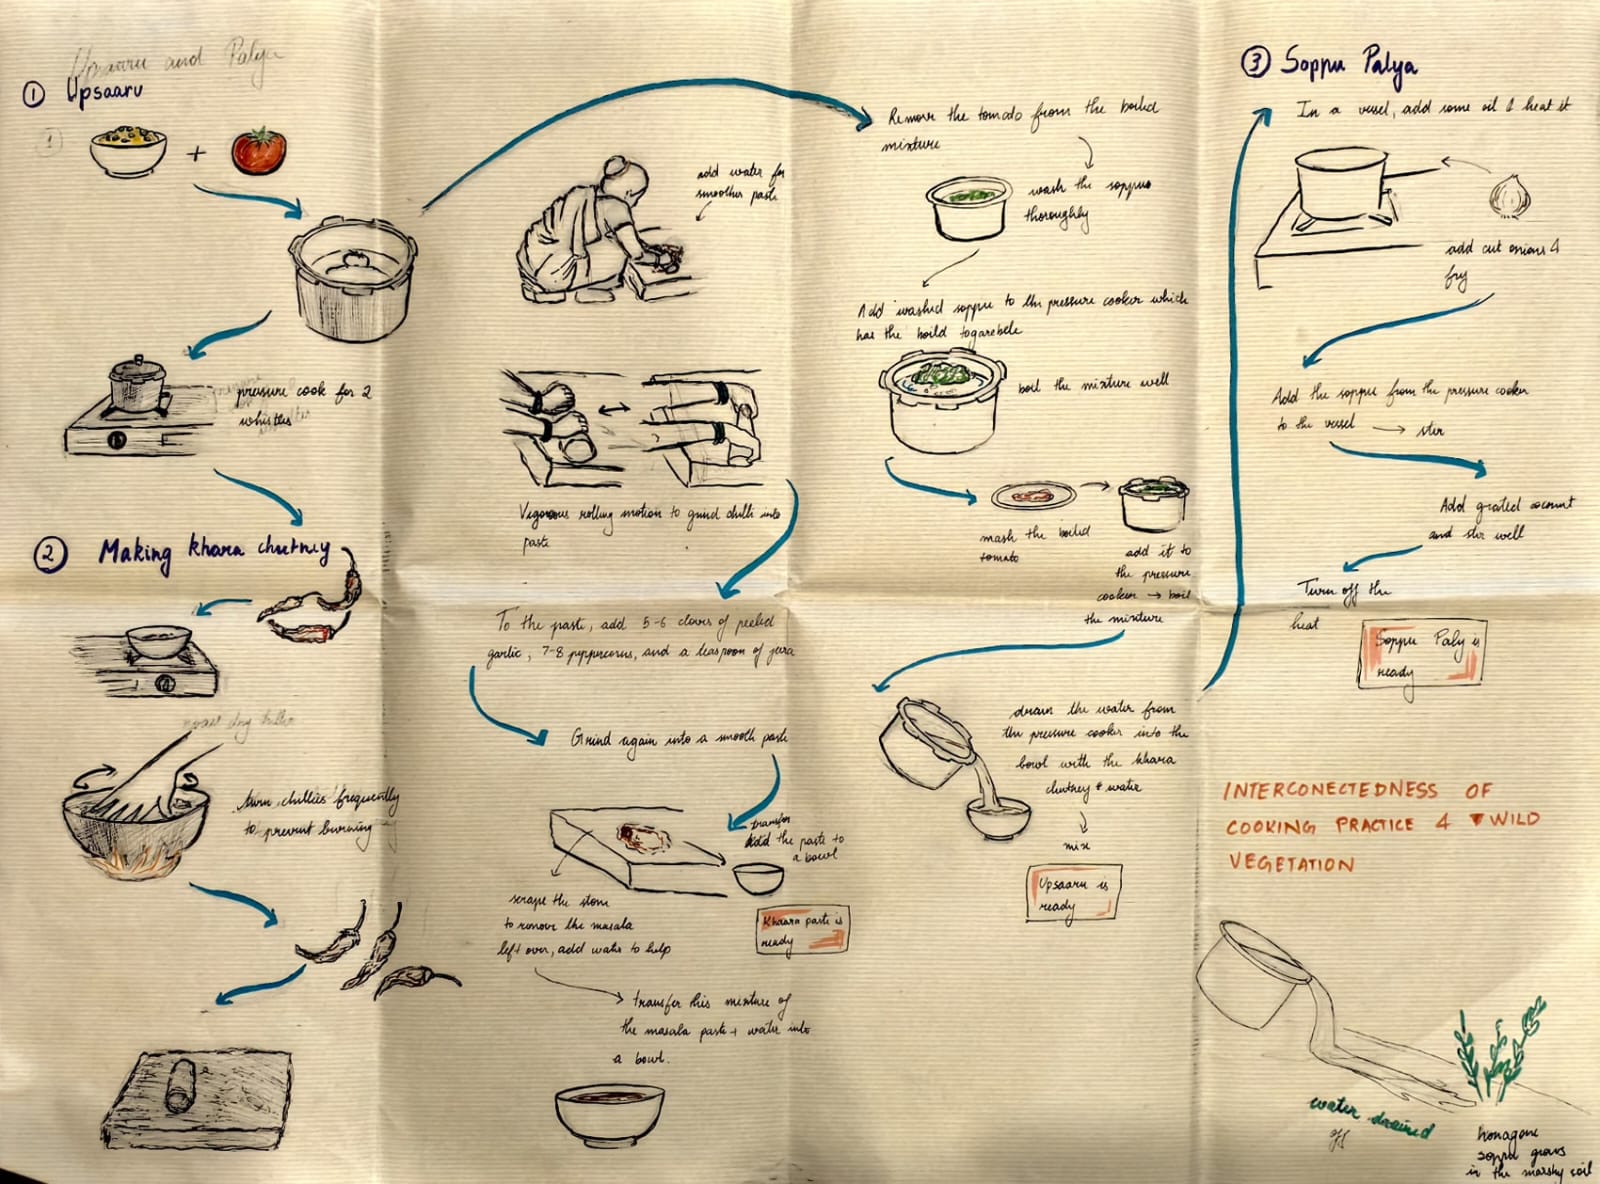 Upsaaru and Palya
① Upsaaru
1
+
pressure cook for 2
whistles
② Making khara chutney
roast dry
turn chillies frequently
to prevent burning
add water for
smoother paste
Vigorous rolling motion to grind chilli into
paste
To the paste, add 5-6 cloves of peeled
garlic, 7-8 peppercorns, and a teaspoon of jeera
Grind again into a smooth paste
transfer
add the paste to
a bowl
scrape the stone
to remove the masala
left over, add water to help
Khaara paste is
ready
transfer this mixture of
the masala paste + water into
a bowl.
Remove the tomado from the boiled
mixture
wash the soppu
thoroughly
Add washed soppu to the pressure cooker which
has the boild togarebele
boil the mixture well
mash the boiled
tomato
add it to
the pressure
cooker → boil
the mixture
drain the water from
the pressure cooker into the
bowl with the khara
chutney + water
mix
Upsaaru is
ready
③ Soppu Palya
In a vessel, add some oil & heat it
add cut onions &
fry
Add the soppu from the pressure cooker
to the vessel → stir
Add grated coconut
and stir well
Turn off the
heat
Soppu Paly is
ready
INTERCONECTEDNESS OF
COOKING PRACTICE & WILD
VEGETATION
water drained
off
honagone
soppu grows
in the marshy soil